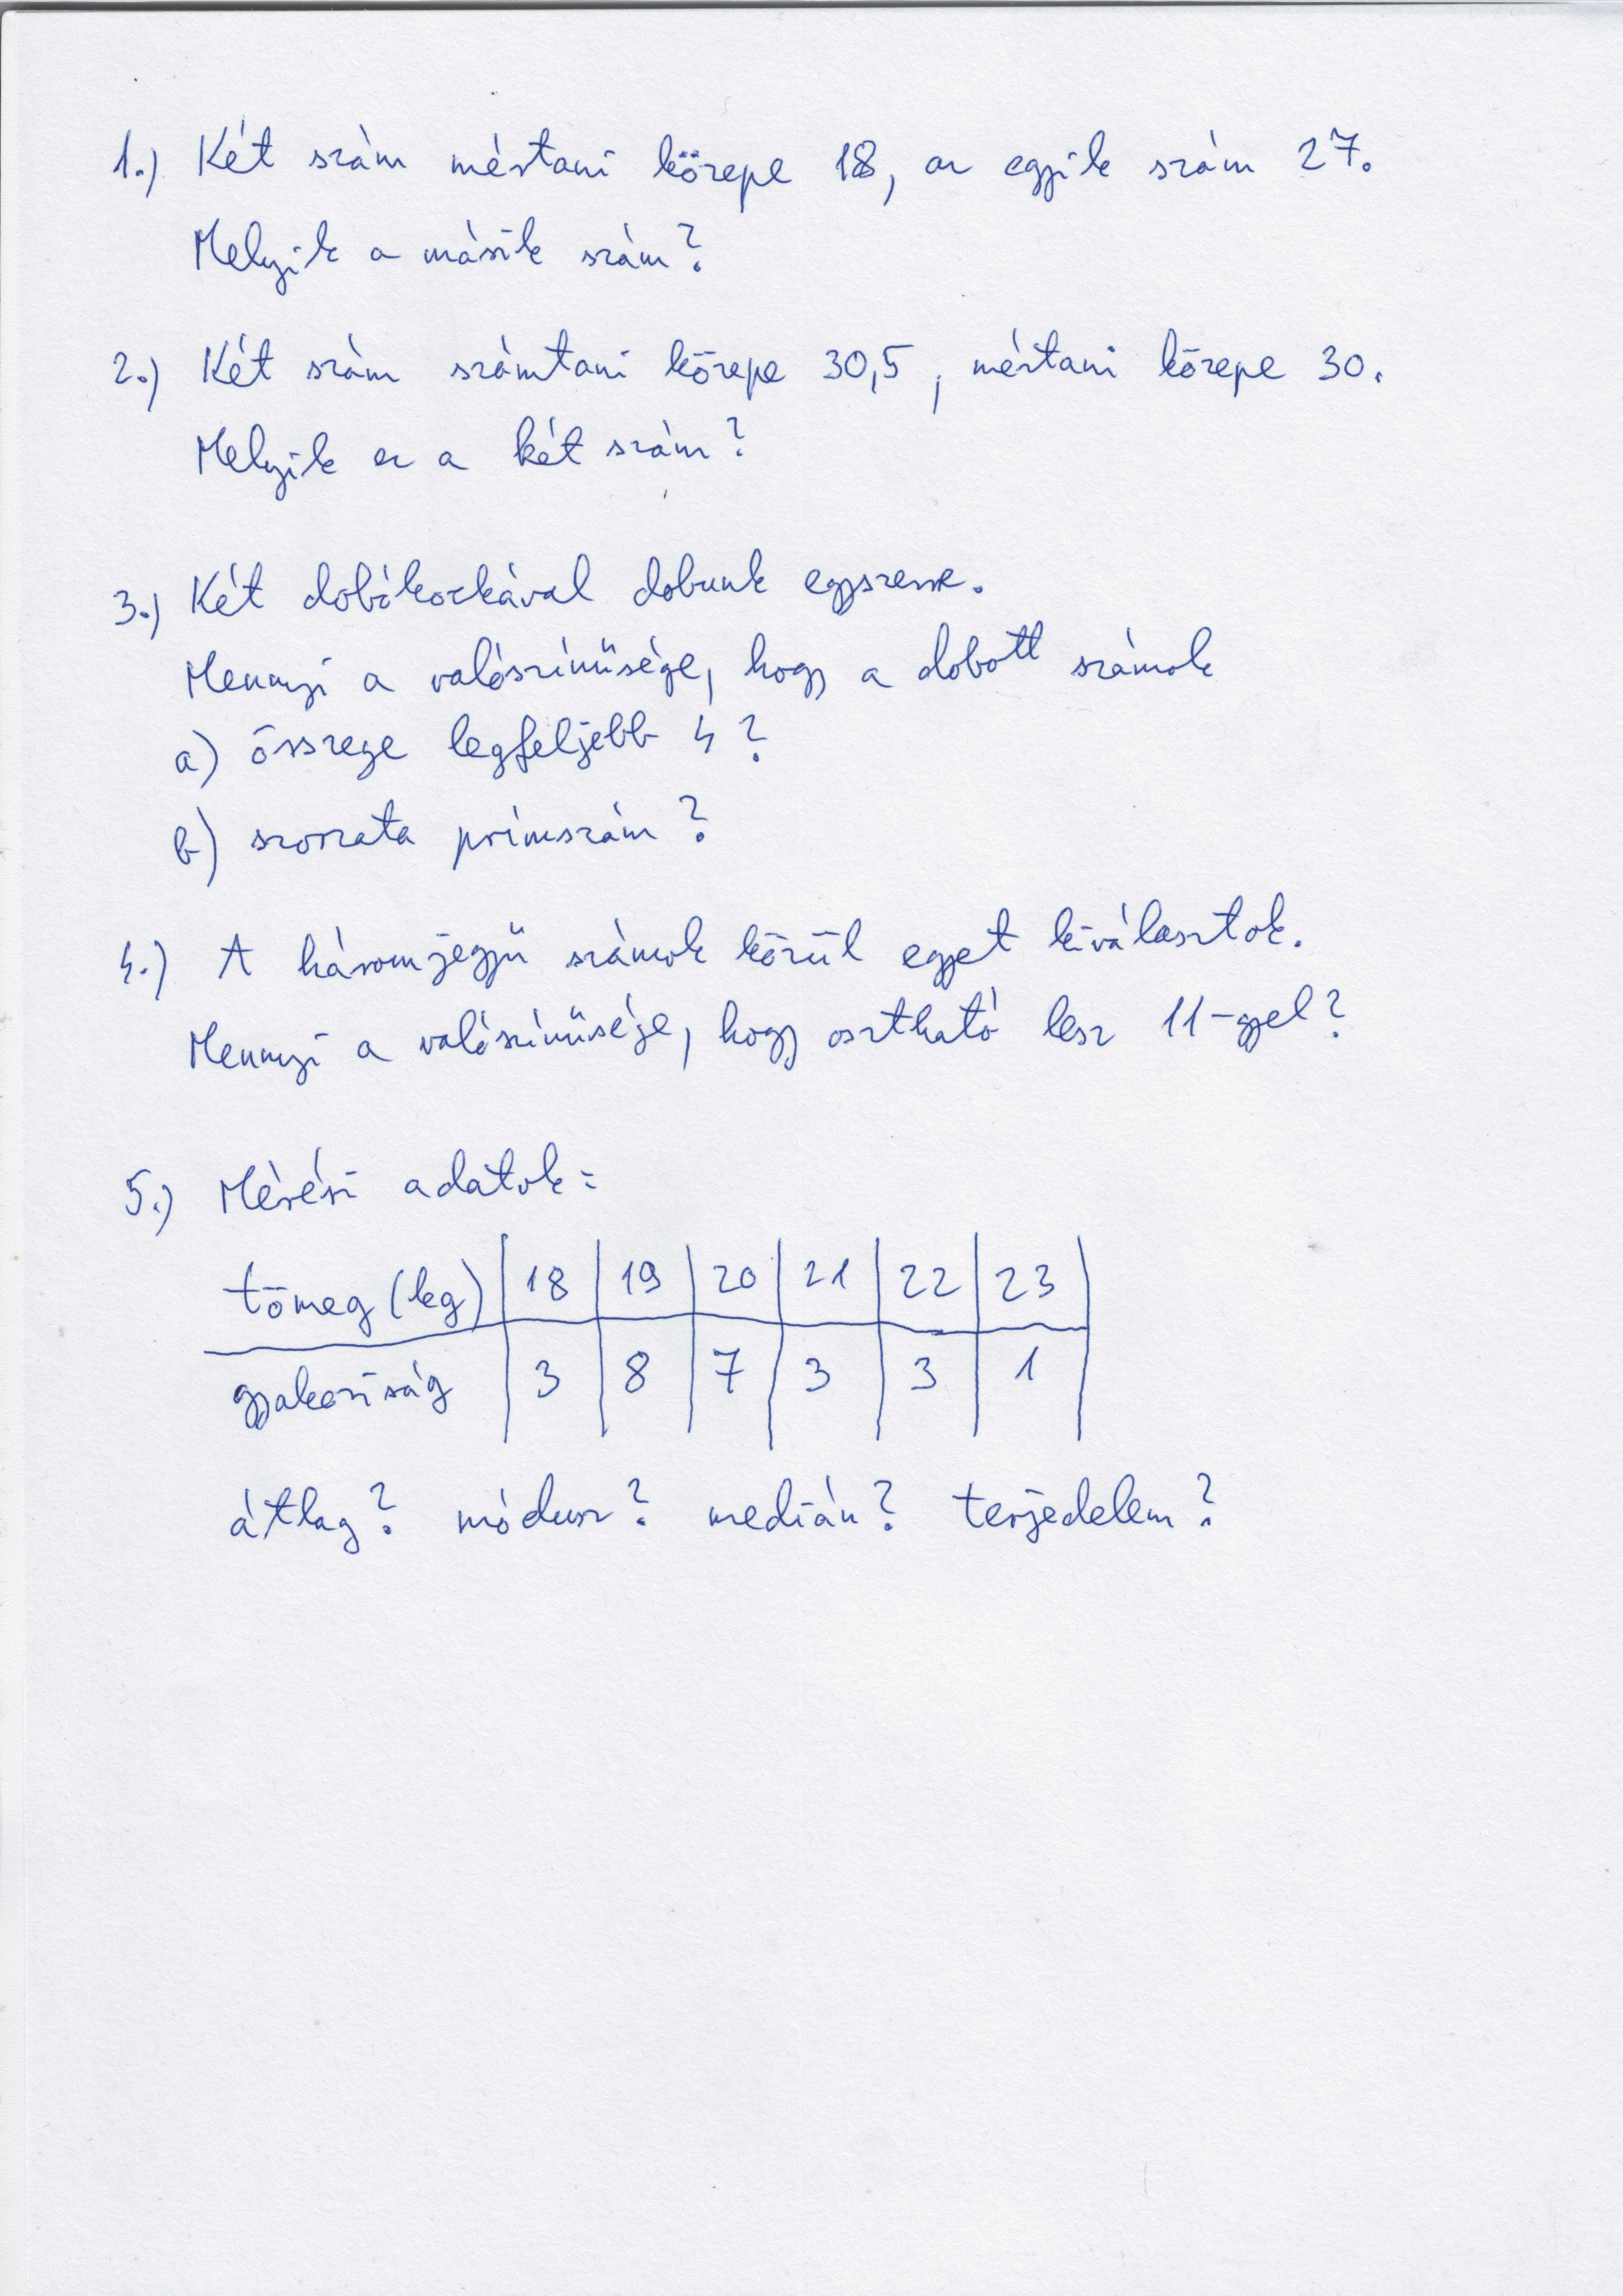 1.) Két szám mértani közepe 18, az egyik szám 27.
Melyik a másik szám?
2.) Két szám számtani közepe 30,5, mértani közepe 30.
Melyik ez a két szám?
3.) Két dobókockával dobunk egyszerre.
Mennyi a valószínűsége, hogy a dobott számok
a) összege legfeljebb 4?
b) szorzata prímszám?
4.) A háromjegyű számok közül egyet kiválasztok.
Mennyi a valószínűsége, hogy osztható lesz 11-gyel?
5.) Mérési adatok:
tömeg (kg) 18 19 20 21 22 23
gyakoriság 3 8 7 3 3 1
átlag? módusz? medián? terjedelem?